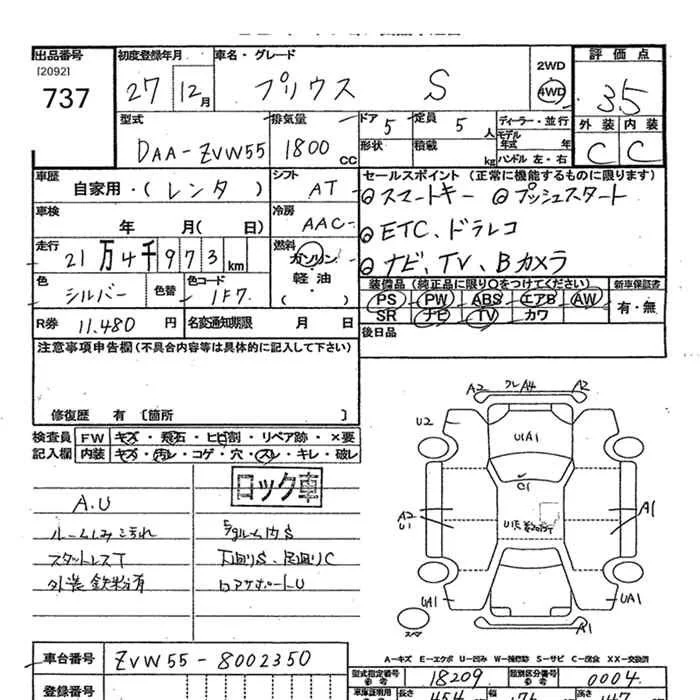 出品番号
[2092]
737
初度登録年月
27 12月
車名・グレード
プリウス S
2WD
4WD
評価点
3.5
外装 内装
C C
型式
DAA-ZVW55
排気量
1800 CC
ドア 5
形状
定員 5 人
積載 kg
ディーラー・並行
モデル
年式 年
ハンドル 左・右
車歴
自家用・(レンタ)
シフト
AT
車検
年 月(日)
冷房
AAC
走行
21万4千973km
燃料
ガソリン
軽油
色
シルバー
色替
色コード
1F7
R券 11,480 円
名変通知期限 月 日
セールスポイント(正常に機能するものに限ります)
スマートキー プッシュスタート
ETC、ドラレコ
ナビ、TV、Bカメラ
装備品(純正品に限り○をつけてください)
PS PW ABS エアB AW
SR ナビ TV カワ
新車保証書
有・無
後日品
注意事項申告欄(不具合内容等は具体的に記入して下さい)
修復歴 有〔箇所 〕
検査員 FW キズ・飛石・ヒビ割・リペア跡・×要
記入欄 内装 キズ・汚レ・コゲ・穴・スレ・キレ・破レ
ロック車
A.U
汚れ
スタットレスT
外装鉄粉有
下廻りS、足廻りC
ロアサポートU
A2 フレA4 A2
U2
U1A1
C1
A2
U1
A1
UA1
UA1
A1
スマ
A-キズ E-エクボ U-凹み W-補修跡 S-サビ C-腐食 XX-交換済
車台番号 ZVW55-8002350
登録番号
型式指定番号
参考
18209
類別区分番号
参考
0004
車庫証明用
長さ
454
幅
176
高さ
147